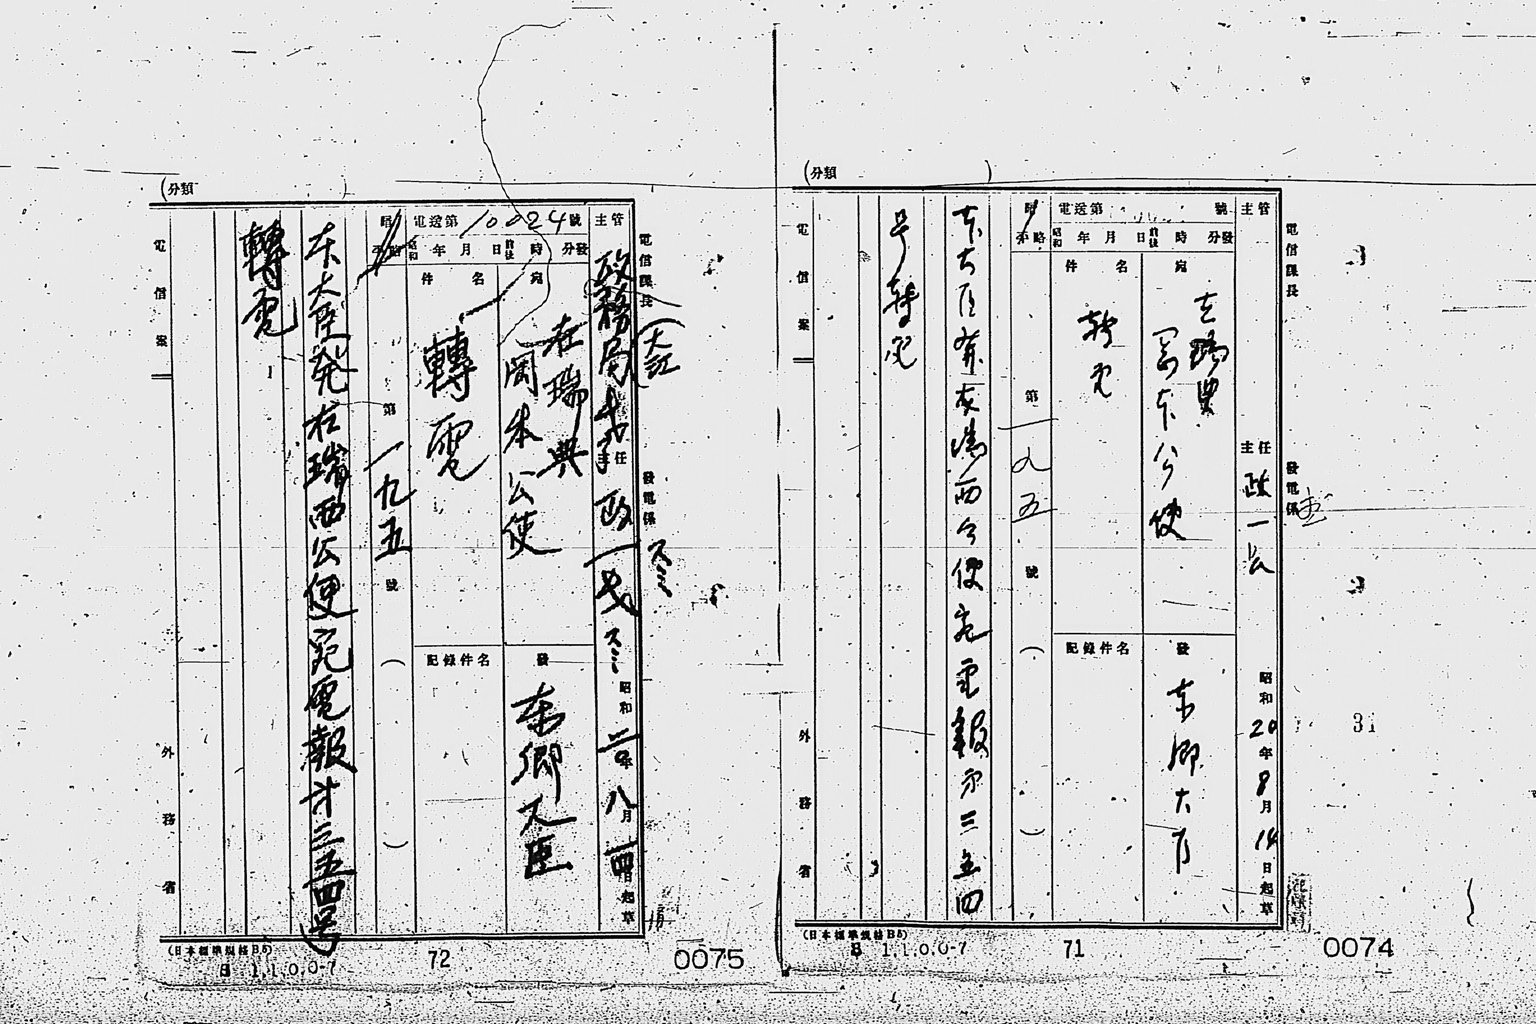 (分類 )
電信課長
發電係
主管
主任 政一公
昭和20年8月14日起草
電送第 號
昭和 年 月 日 前後 時 分發
宛
在瑞典
岡本公使
發
東郷大臣
件名
轉電
記錄件名
略
平
第一九五號
( )
本大臣發在瑞西公使宛電報第三五四
号轉電
電信案
外務省
(日本標準規格B5)
B 1.1.0.0-7
71
0074
31
(分類 )
電信課長
發電係
主管 政務局
主任 政一
昭和二〇年八月一四日起草
電送第10024號
昭和 年 月 日 前後 時 分發
宛
在瑞典
岡本公使
發
東郷大臣
件名
轉電
記錄件名
略
平
第一九五號
( )
本大臣発在瑞西公使宛電報第三五四号
轉電
電信案
外務省
(日本標準規格B5)
B 1.1.0.0-7
72
0075